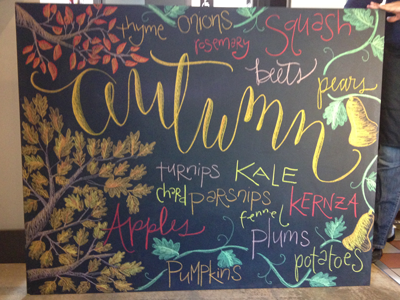 thyme onions Squash
rosemary
beets
pears
autumn
turnips KALE
chard parsnips KERNZA
fennel
Apples plums
potatoes
PUMPKINS